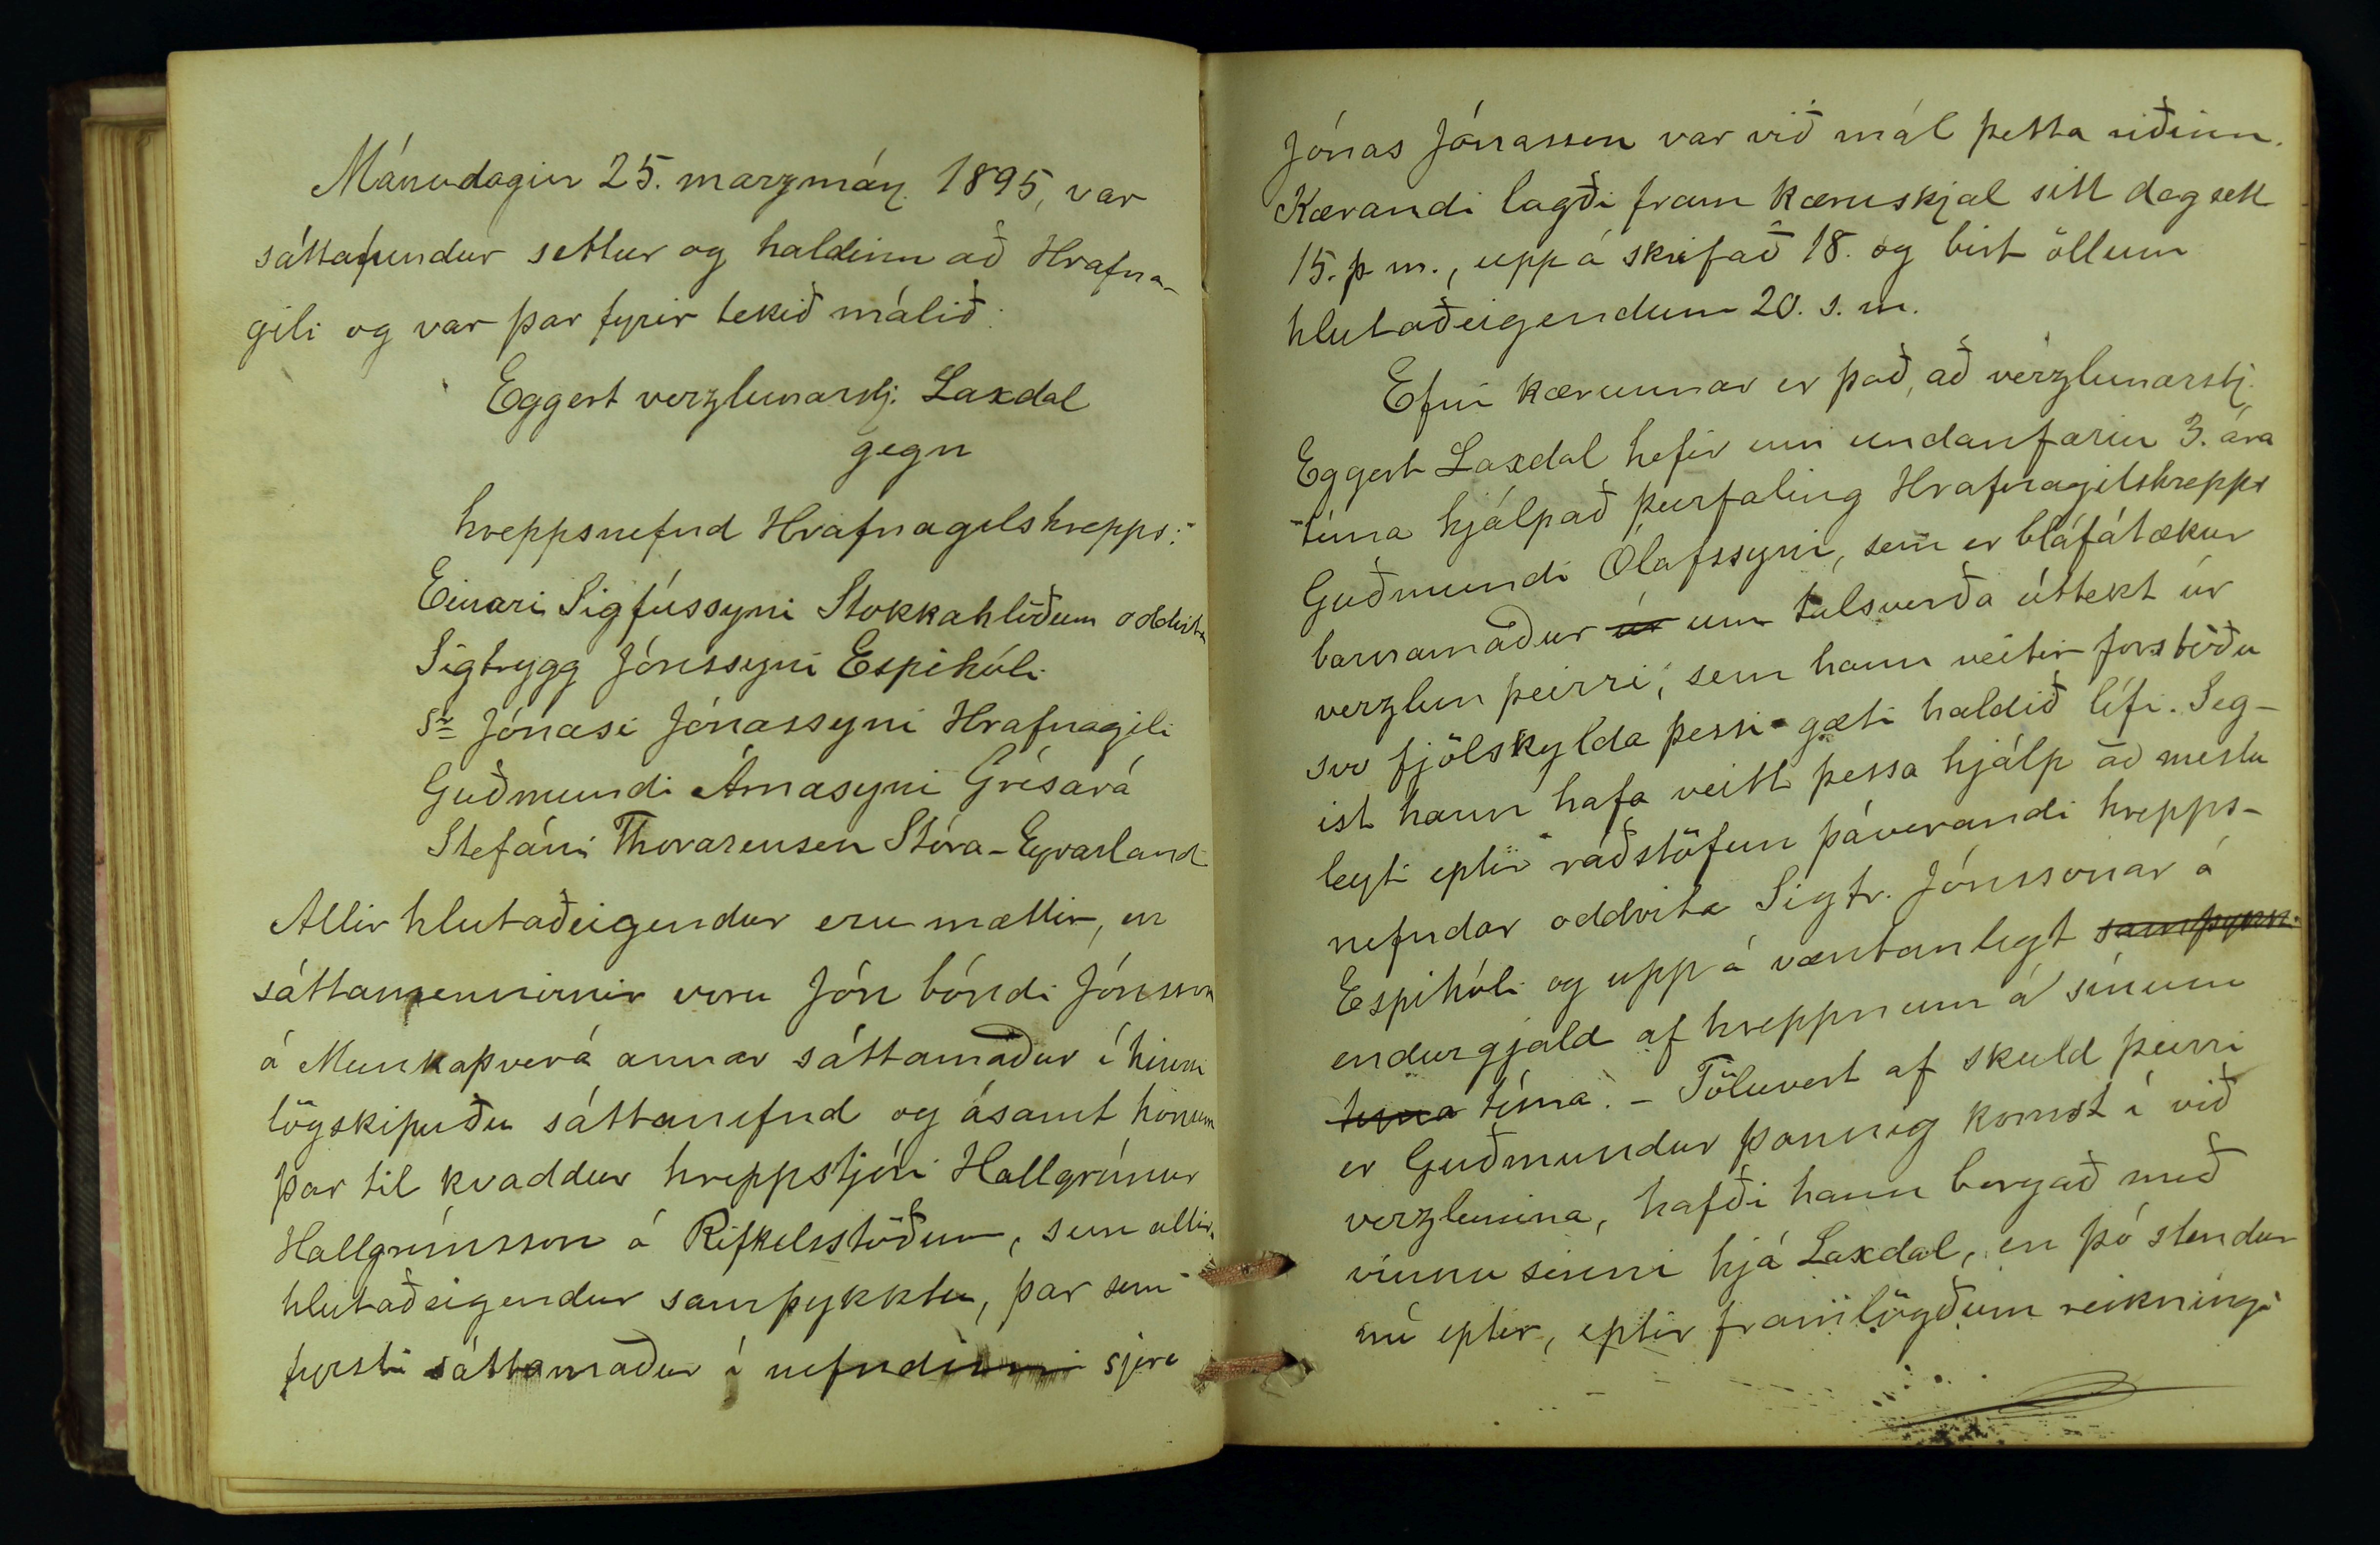 Mánudaginn 25. marzmán. 1895, var
sáttafundur settur og haldinn að Hrafna-
gili og var þar fyrir tekið málið:
Eggert verzlunarstj. Laxdal
gegn
hreppsnefnd Hrafnagilshrepps:
Einari Sigfússyni Stokkahlöðum oddvita
Sigtrygg Jónssyni Espihóli
Sr Jónasi Jónassyni Hrafnagili
Guðmundi Árnasyni Grísará
Stefáni Thorarensen Stóra-Eyrarland
Allir hlutaðeigendur eru mættir, en
sáttamennirnir voru Jón bóndi Jónsson
á Munkaþverá annar sáttamaður í hinni
lögskipuðu sáttanefnd og ásamt honum
þar til kvaddur hreppstjóri Hallgrímur
Hallgrímsson á Rifkelsstöðum, sem allir
hlutaðeigendur samþykktu, þar sem
fyrsti sáttamaður í nefndinni sjera
Jónas Jónasson var við mál þetta riðinn.
Kærandi lagði fram kæruskjal sitt dagsett
15. þ. m., uppá skrifað 18. og birt öllum
hlutaðeigendum 20. s. m.
Efni kærunnar er það, að verzlunarstj.
Eggert Laxdal hefir um undanfarin 3. ára
tíma hjálpað þurfaling Hrafnagilshrepps
Guðmundi Ólafssyni, sem er bláfátækur
barnamaður úr um talsverða úttekt úr
verzlun þeirri, sem hann veitir forstöðu
svo fjölskylda þessi gæti haldið lífi. Seg-
ist hann hafa veitt þessa hjálp að mestu
leyti eptir ráðstöfun þáverandi hrepps-
nefndar oddvita Sigtr. Jónssonar á
Espihóli og uppá væntanlegt samþykki
endurgjald af hreppnum á sínum
tíma tíma. - Töluvert af skuld þeirri
er Guðmundur þannig komst í við
verzlunina, hafði hann borgað með
vinnu sinni hjá Laxdal, en þó stendur
nú eptir, eptir framlögðum reikningi